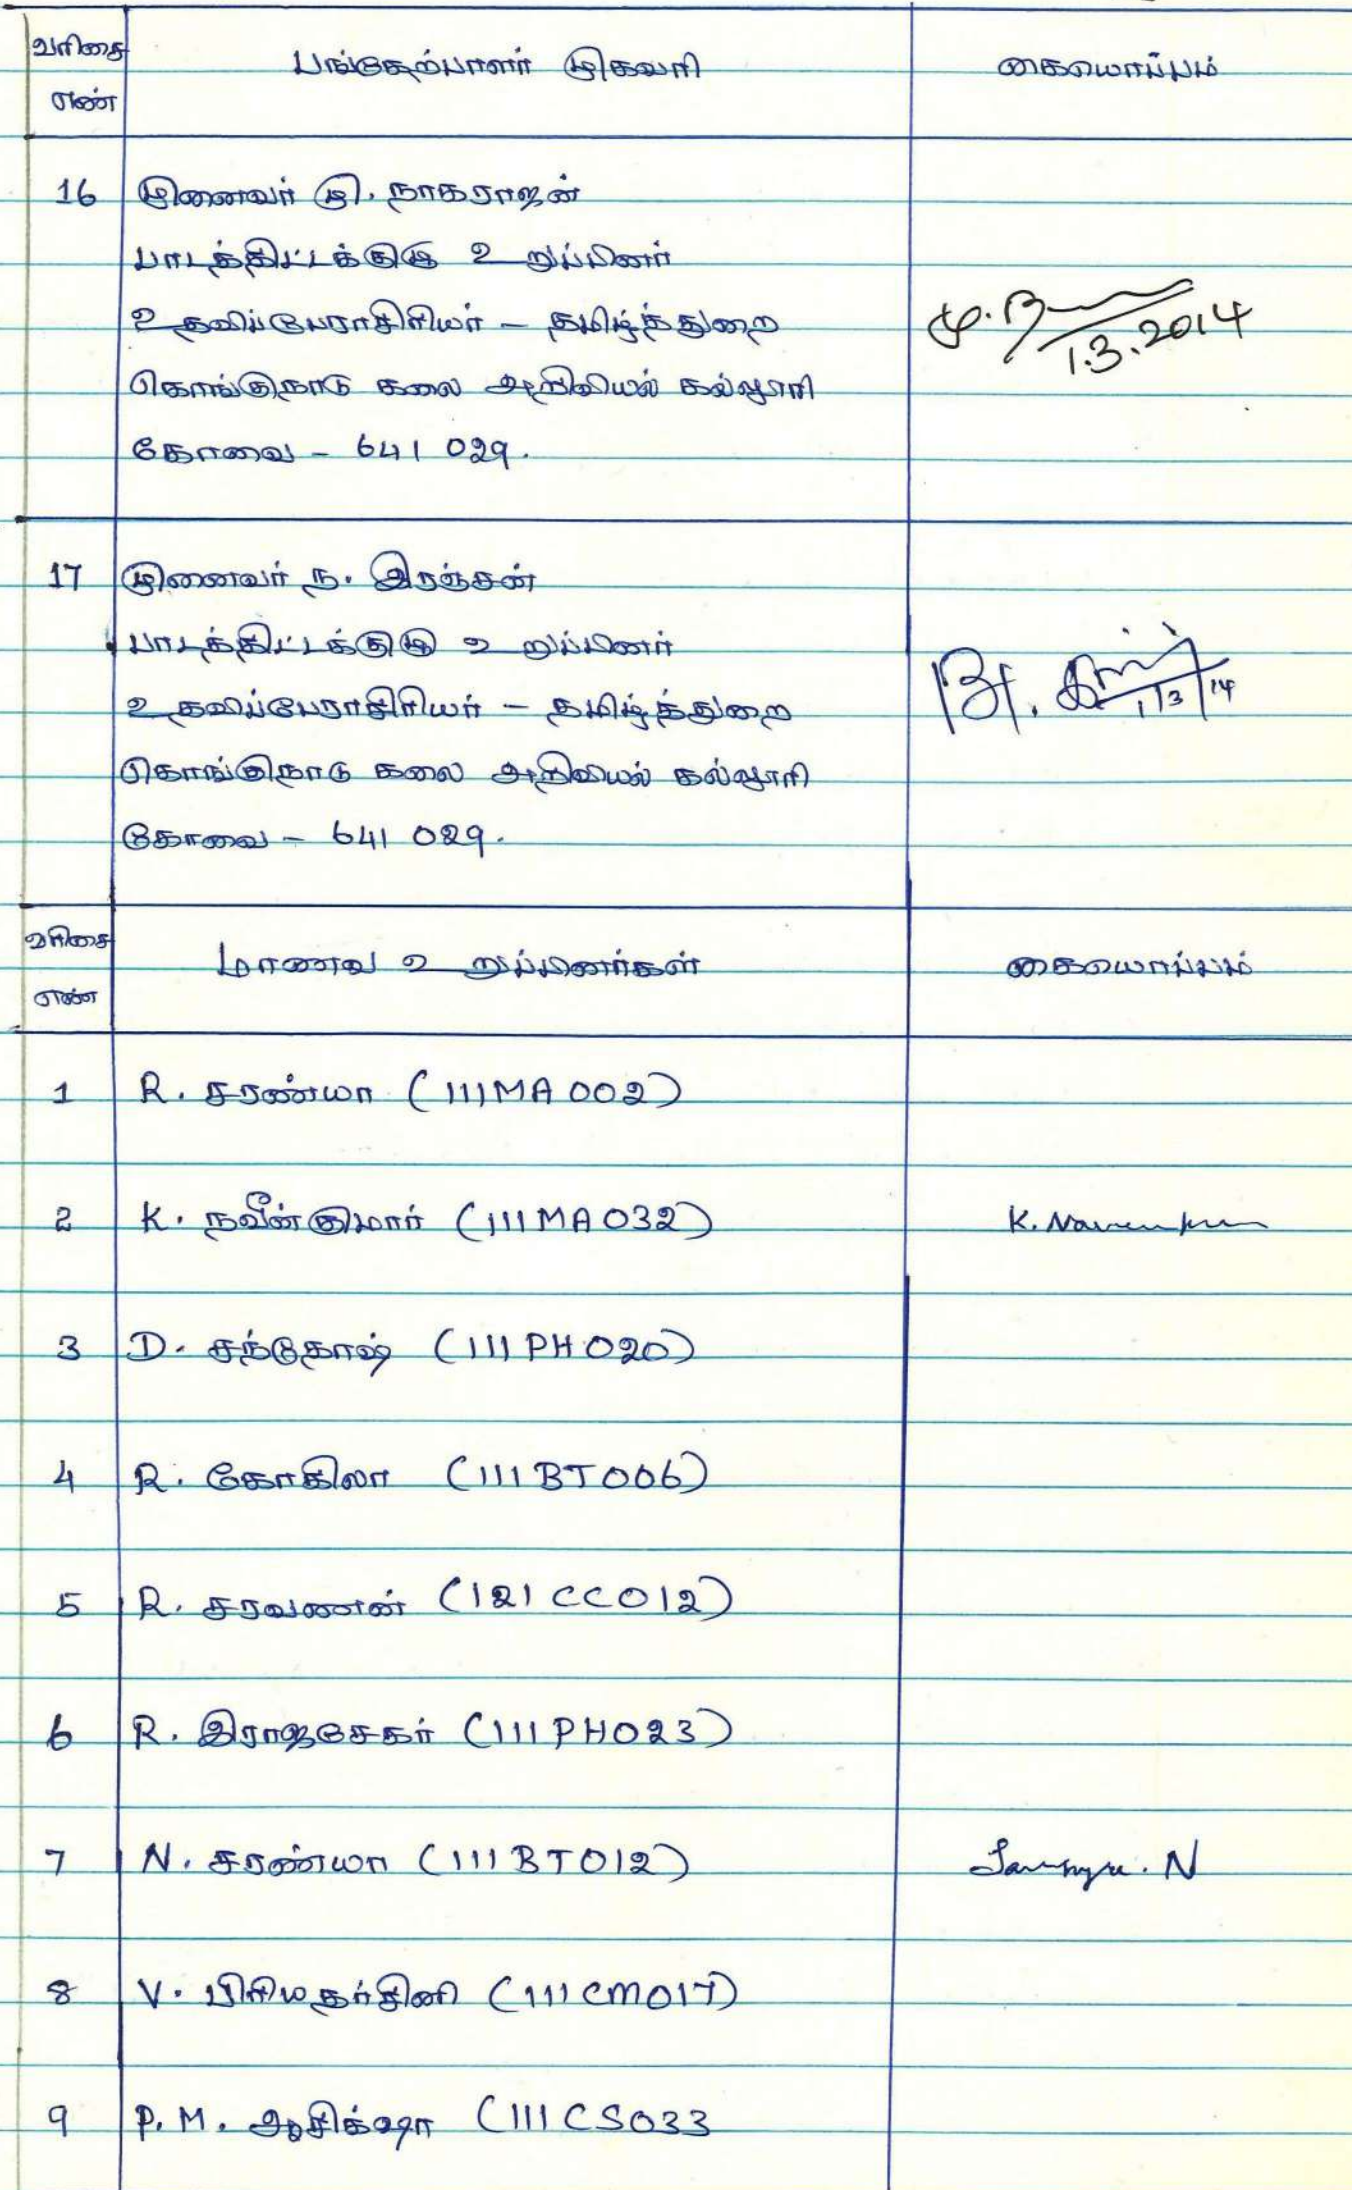 வரிசை எண் பங்கேற்பாளர் முகவரி கையொப்பம்
16 முனைவர் மு. நாகராஜன்
பாடத்திட்டக்குழு உறுப்பினர்
உதவிப்பேராசிரியர் – தமிழ்த்துறை
கொங்குநாடு கலை அறிவியல் கல்லூரி
கோவை – 641 029.
மு.ந
1.3.2014
17 முனைவர் ந. இரஞ்சன்
பாடத்திட்டக்குழு உறுப்பினர்
உதவிப்பேராசிரியர் – தமிழ்த்துறை
கொங்குநாடு கலை அறிவியல் கல்லூரி
கோவை – 641 029.
1/3/14
வரிசை எண் மாணவ உறுப்பினர்கள் கையொப்பம்
1 R. சரண்யா (111MA002)
2 K. நவீன்குமார் (111MA032) K. Naveenkum
3 D. சந்தோஷ் (111PH020)
4 R. கோகிலா (111BT006)
5 R. சரவணன் (121CC012)
6 R. இராஜசேகர் (111PH023)
7 N. சரண்யா (111BT012) Saranya. N
8 V. பிரியதர்சினி (111CM017)
9 P.M. ஆசிக்ஷா (111CS033